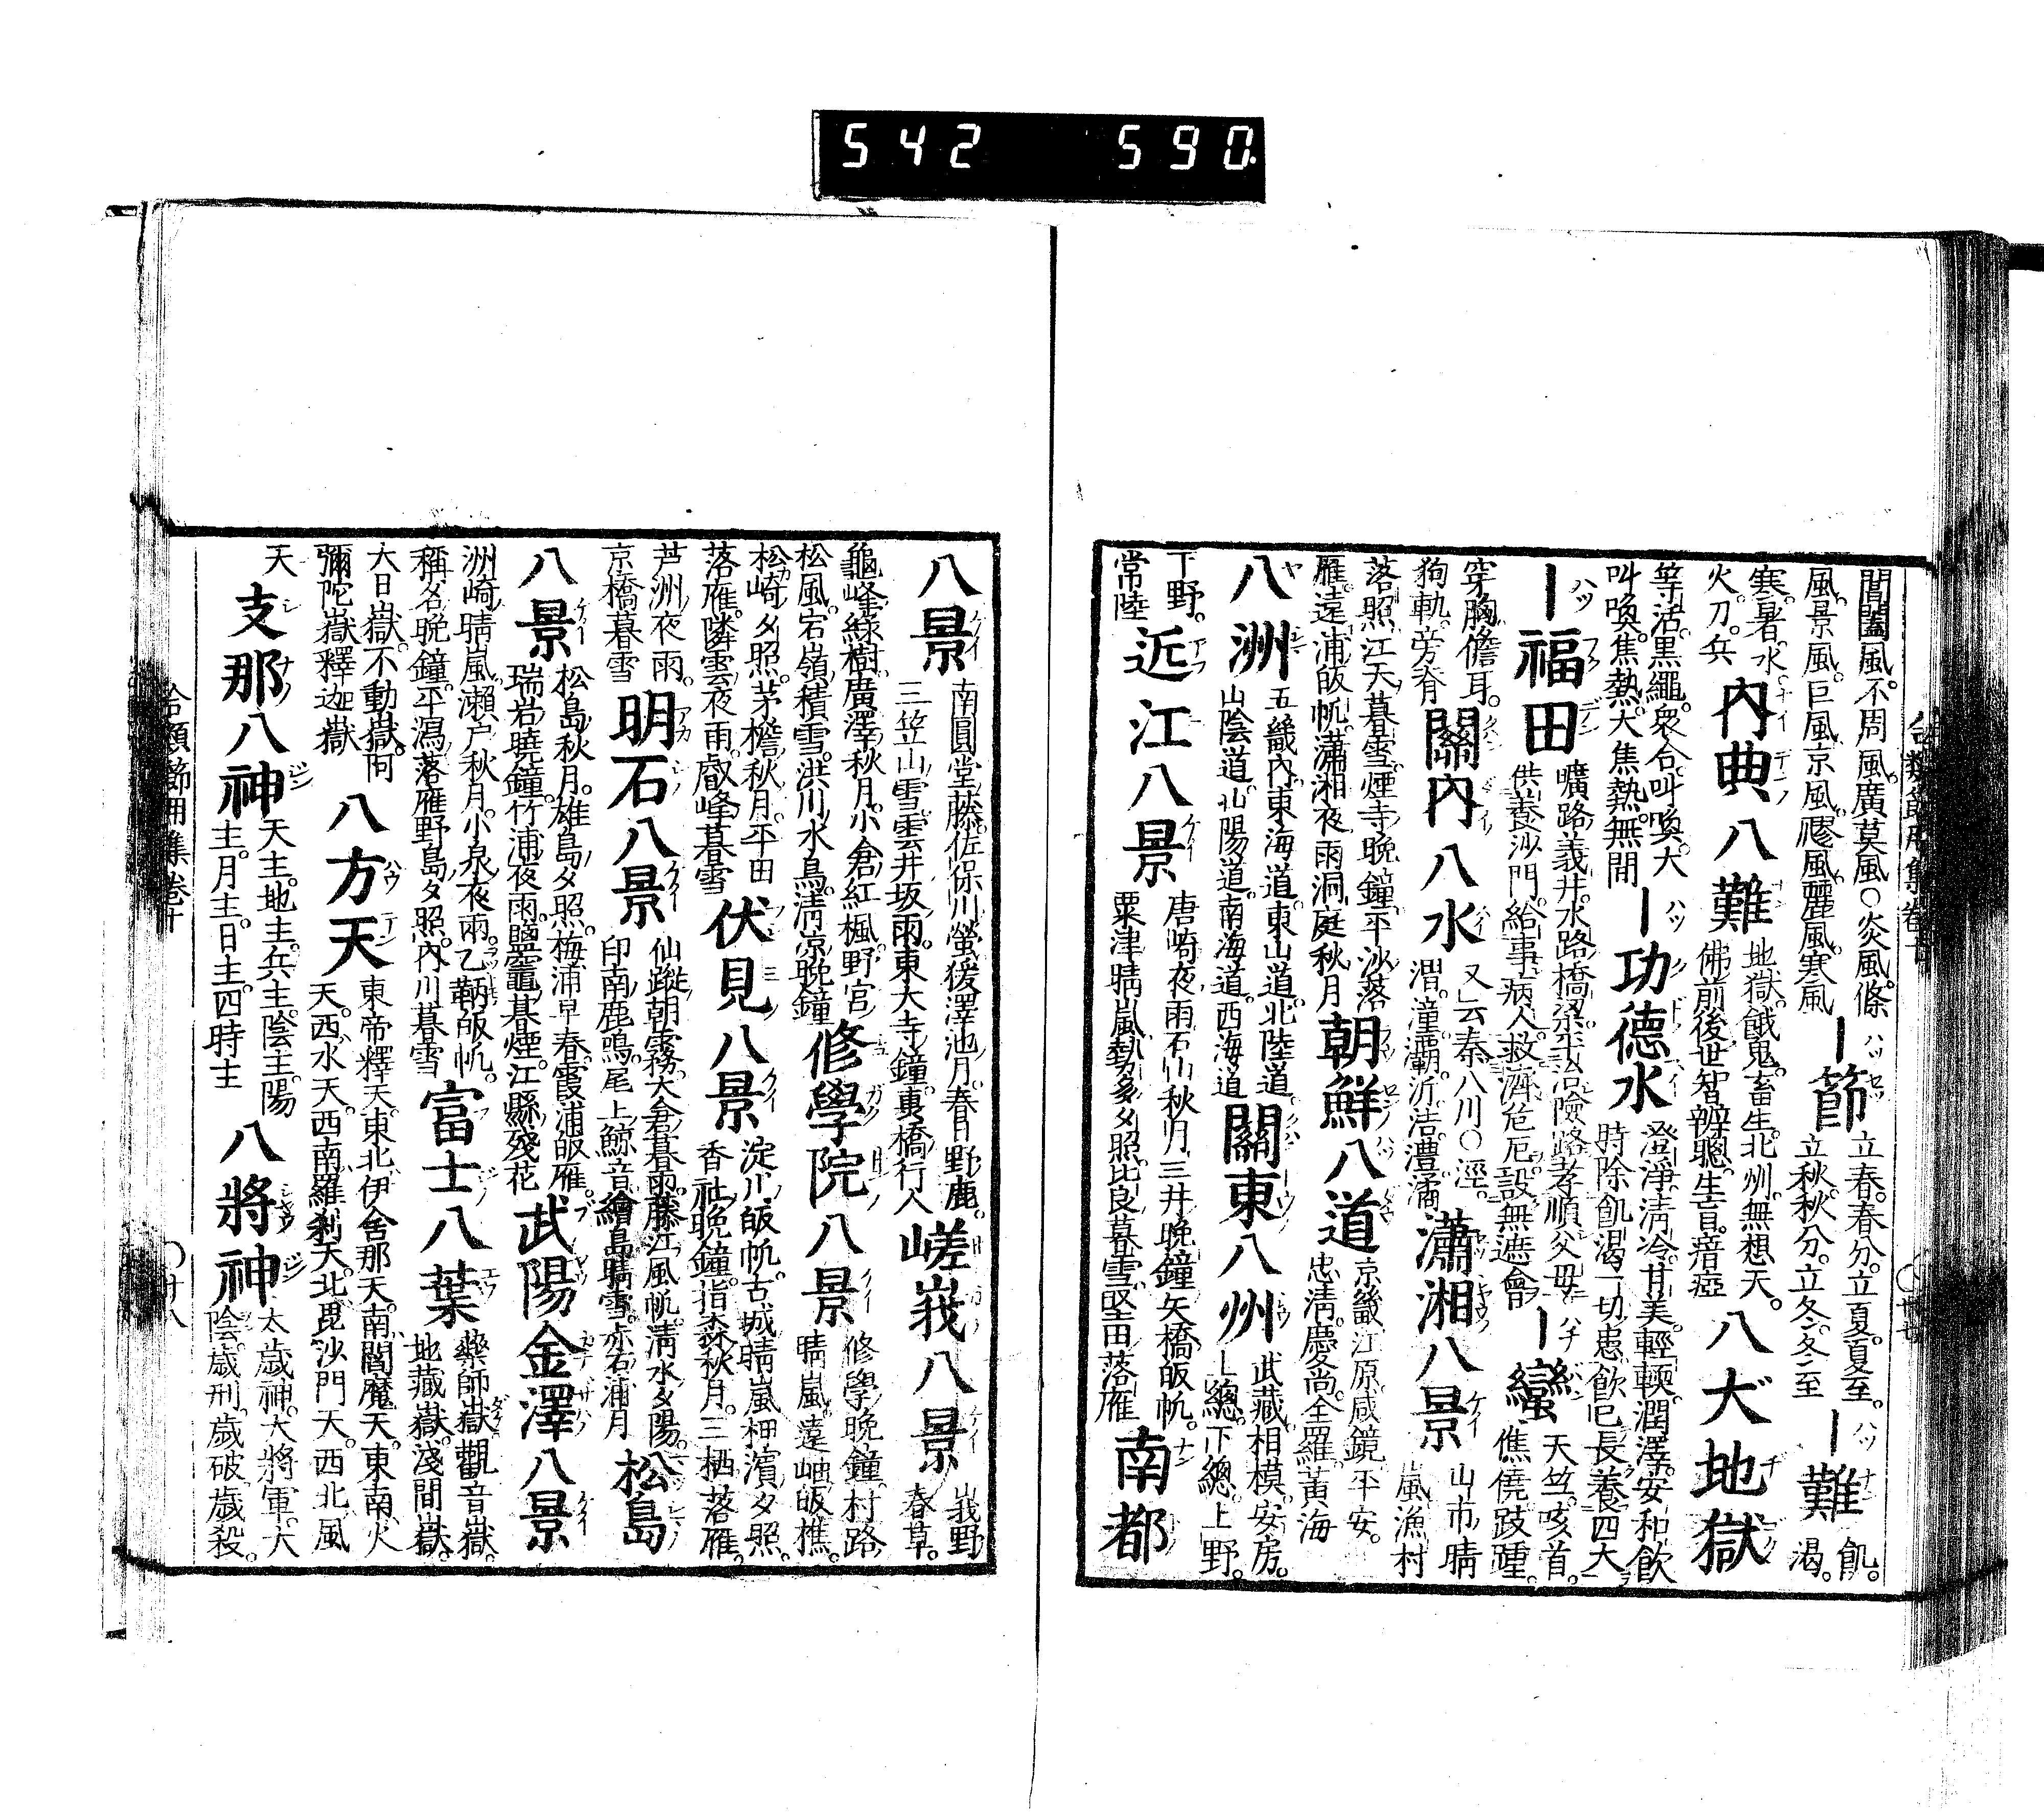 542 590
合類節用集卷十 〇廿七
閶闔風。不周風。廣莫風〇炎風。條
風。景風。巨風。京風。飂風。麗風。寒風
ー節 立春。春分。立夏。夏至。
立秋。秋分。立冬。冬至
ー難 飢。渴。
寒。暑。水。
火。刀。兵
內典八難 地獄。餓鬼。畜生。北州。無想天。
佛前後。世智辨聰。生盲瘖瘂
八大地獄
等活。黒繩。衆合。叫喚。大
叫喚。焦熱。大焦熱。無間
ー功德水 澄淨。淸冷。甘美。輕輭。潤澤。安和。飲
時除飢渴一切患。飲已長養四大
ー福田 曠路義井。水路橋梁。平治險路。孝順父母。
供養沙門。給事病人。救濟危厄。設無遮會
ー蠻 天竺。咳首。
僬僥。跂踵。
穿胸。儋耳。
狗軌。旁脊
關內八水 又云秦八川〇涇。
渭。潼。灞。沂。洁。澧。潏
瀟湘八景 山市晴
嵐。漁村
落照。江天暮雪。煙寺晚鐘。平沙落
雁。遠浦皈帆。瀟湘夜雨。洞庭秋月
朝鮮八道 京畿。江原。咸鏡。平安。
忠淸。慶尚。全羅。黃海
八洲 五畿內。東海道。東山道。北陸道
山陰道。山陽道。南海道。西海道
關東八州 武藏。相模。安房。
上總。下總。上野。
下野。
常陸
近江八景 唐崎夜雨。石山秋月。三井晚鐘。矢橋皈帆。
粟津晴嵐。勢多夕照。比良暮雪。堅田落雁
南都
八景 南圓堂藤。佐保川螢。猿澤池月。春日野鹿。
三笠山雪。雲井坂雨。東大寺鐘。轟橋行人
嵯峩八景 峩野
春草。
龜峰綠樹。廣澤秋月。小倉紅楓。野宮
松風。宕嶺積雪。洪川水鳥。淸凉晚鐘
修學院八景 修學晚鐘。村路
晴嵐。遠岫皈樵。
松崎夕照。茅檐秋月。平田
落雁。隣雲夜雨。叡峰暮雪
伏見八景 淀川皈帆。古城晴嵐。柵濱夕照。
香社晚鐘。指森秋月。三栖落雁。
芦洲夜雨。
京橋暮雪
明石八景 仙蹤朝霧。大倉暮雨。藤江風帆。淸水夕陽。
印南鹿鳴。尾上鯨音。繪島晴雪。赤石浦月
松島
八景 松島秋月。雄島夕照。梅浦早春。霞浦皈雁。
瑞岩曉鐘。竹浦夜雨。鹽竈暮煙。江縣殘花
武陽金澤八景
洲崎晴嵐。瀨戸秋月。小泉夜雨。乙鞆皈帆。
稱名晚鐘。平瀉落雁。野島夕照。內川暮雪
富士八葉 藥師嶽。觀音嶽。
地藏嶽。淺間嶽。
大日嶽。不動嶽。阿
彌陀嶽。釋迦嶽
八方天 東帝釋天。東北伊舍那天。南閻魔天。東南火
天。西水天。西南羅刹天。北毘沙門天。西北風
天
支那八神 天主。地主。兵主。陰主。陽
主。月主。日主。四時主
八將神 太歲神。大將軍。大
陰。歲刑。歲破。歲殺。
合類節用集卷十 〇廿八